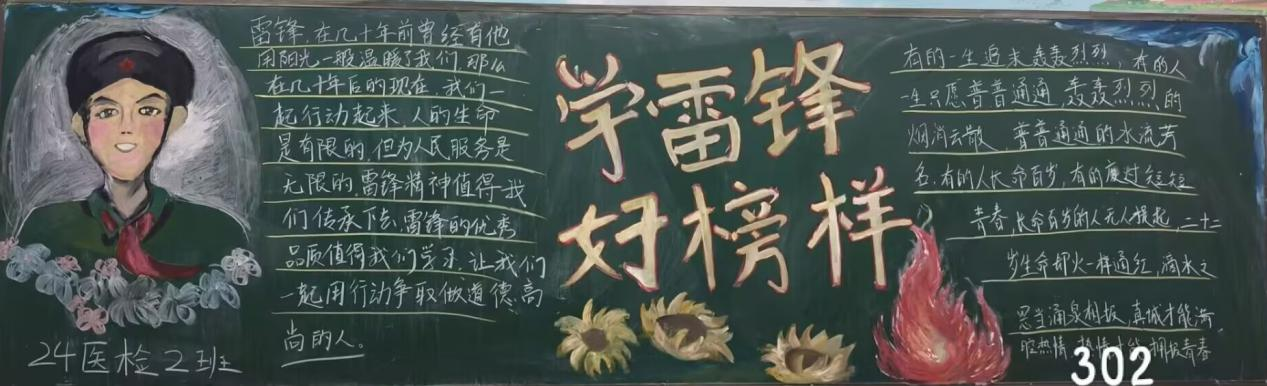 雷锋,在几十年前曾经有他
用阳光一般温暖了我们,那么
在几十年后的现在,我们一
起行动起来,人的生命
是有限的,但为人民服务是
无限的,雷锋精神值得我
们传承下去,雷锋的优秀
品质值得我们学习,让我们
一起用行动争取做道德高
尚的人。
24医检2班
学雷锋
好榜样
有的一生追求轰轰烈烈,有的人
一生只愿普普通通,轰轰烈烈的
烟消云散,普普通通的水流芳
名,有的人长命百岁,有的度过短短
青春,长命百岁的人无人提起,二十二
岁生命却火一样通红,滴水之
恩当涌泉相报,真诚才能满
腔热情,热情才能拥抱青春
302